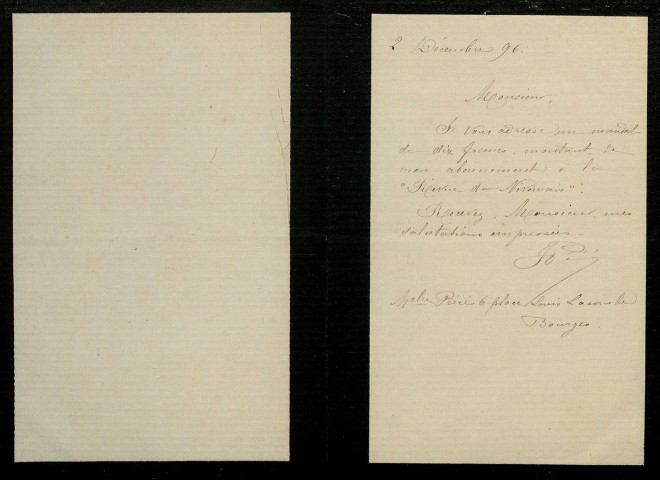 2 Décembre 96.
Monsieur,
Je vous adresse un mandat
de dix francs montant de
mon abonnement à la
"Revue du Nivernais".
Recevez, Monsieur, mes
salutations empressées.
Place Louis Lacombe
Bourges.